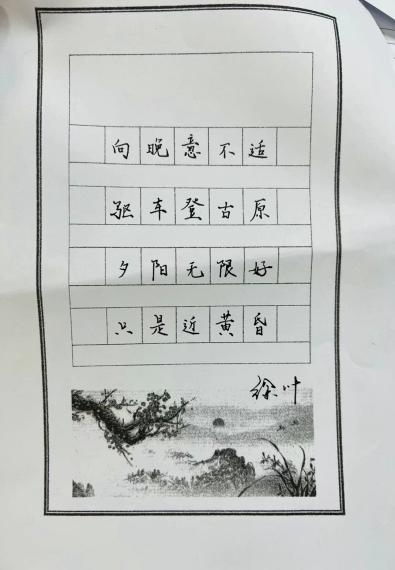 向晚意不适
驱车登古原
夕阳无限好
只是近黄昏
徐叶